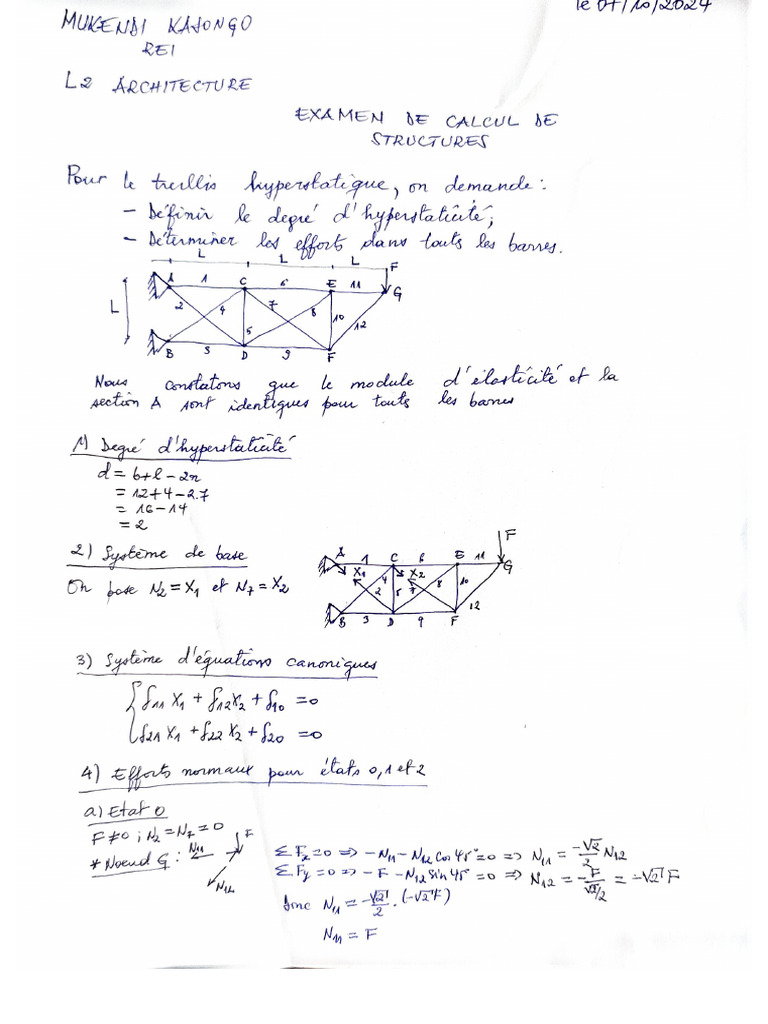 le 07/10/2024
MUKENDI KASONGO
REI
L2 ARCHITECTURE
EXAMEN DE CALCUL DE
STRUCTURES
Pour le treillis hyperstatique, on demande :
- Définir le degré d'hyperstaticité ;
- Déterminer les efforts dans touts les barres.
L L L F
A 1 C 6 E 11 G
L 2 4 7 8 10 12
5
B 3 D 9 F
Nous constatons que le module d'élasticité et la
section A sont identiques pour touts les barres
1) Degré d'hyperstaticité
d = b+l-2n
= 12+4-2.7
= 16-14
= 2
2) Système de base
On pose N2 = X1 et N7 = X2
F
A 1 C 6 E 11 G
X1 4 X2 8 10
2 5 7 12
B 3 D 9 F
3) Système d'équations canoniques
{ δ11 X1 + δ12 X2 + δ10 = 0
δ21 X1 + δ22 X2 + δ20 = 0
4) Efforts normaux pour états 0, 1 et 2
a) Etat 0
F≠0 ; N2 = N7 = 0
* Noeud G : N11 F
N12
ΣFx=0 => -N11 - N12 cos 45°=0 => N11 = -√2/2 N12
ΣFy=0 => -F - N12 sin 45° = 0 => N12 = -F/√2/2 = -√2 F
Donc N11 = -√2/2 . (-√2 F)
N11 = F